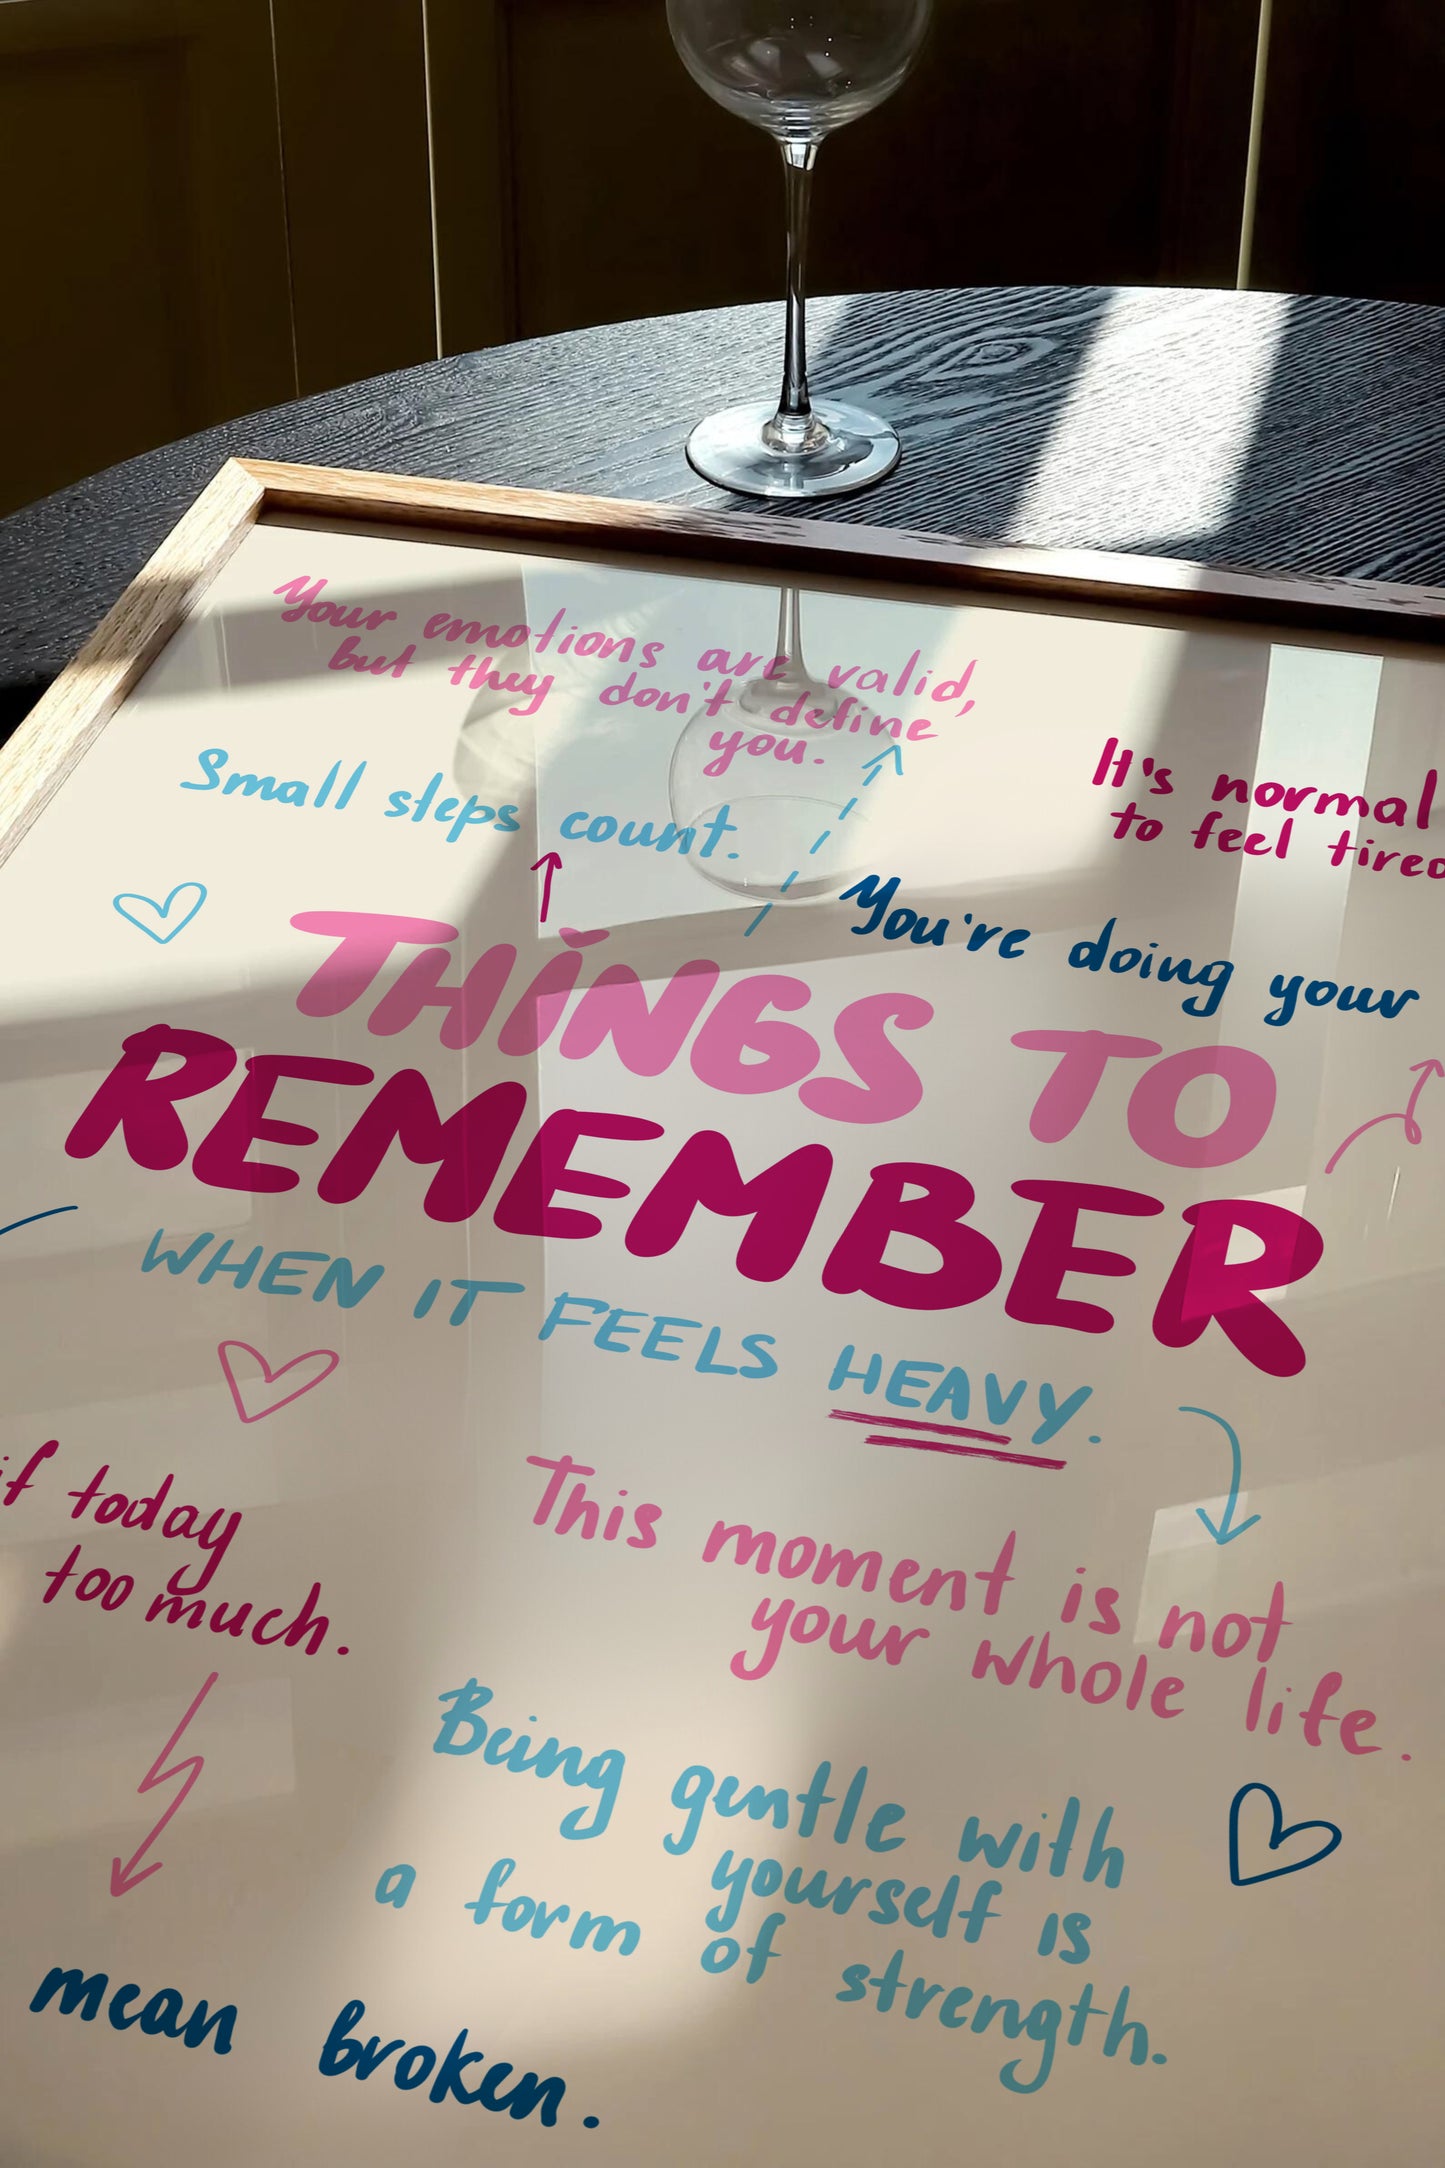 Your emotions are valid,
but they don't define
you.
Small steps count.
It's normal
to feel tired
You're doing your
THINGS TO
REMEMBER
WHEN IT FEELS HEAVY.
if today
too much.
This moment is not
your whole life.
Being gentle with
yourself is
a form of strength.
mean broken.